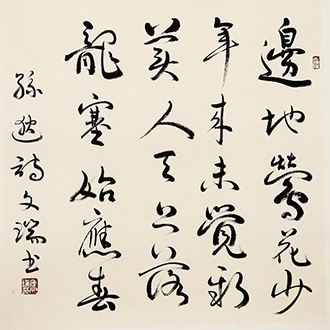 邊地鶯花少
年來未覺新
美人天上落
龍塞始應春
孫逖詩文瑞書